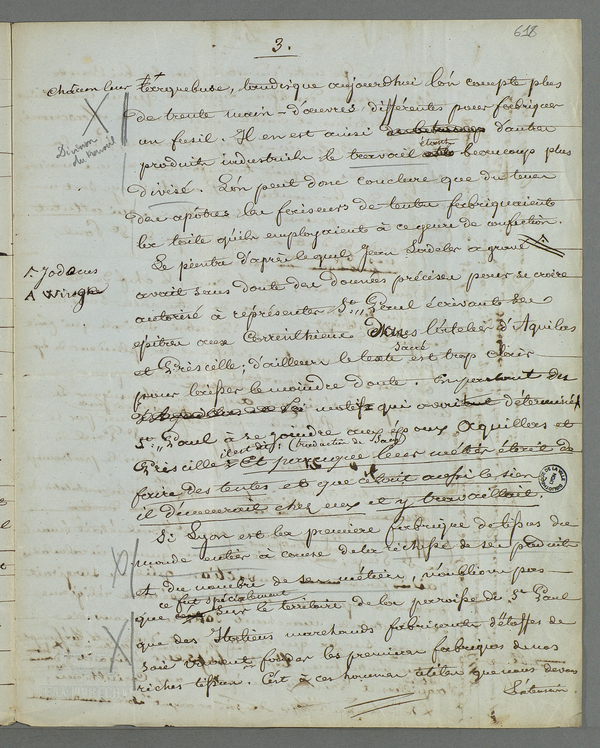 618
3.
chacun leur harquebuse, tandisque aujourdhui l'on compte plus
de trente main-d'œuvres différentes pour fabriquer
un fusil. Il en est ainsi d'autres
produits industriels le travail étant beaucoup plus
divisé. L'on peut donc conclure que du tems
des apôtres les faiseurs de tentes fabriquaient
les toile qu'ils employaient à ce genre de confection.
Division
du travail
Le peintre d'après lequel Jean Sadeler a gravé
St Jodocus
A Winghe
avait sans doute des données précises pour se croire
autorisé à représenter St Paul écrivant ses
epitres aux Correnthiens dans l'atelier d'Aquilas
et Priscille; d'ailleurs le texte sacré est trop clair
pour laisser le moindre doute. En parlant des
motifs qui avaient déterminé
St Paul à se joindre aux époux Aquillas et
Priscille il est dit: (traduction de Sacy)
Et parceque leur métier était de
faire des tentes et que c'était aussi le sien
il demeurait chez eux et y travaillait.
Si Lyon est la première fabrique de tissus du
monde entier à cause de la richesse de ses produits
et du nombre de ses métiers, n'oublions pas
que ce fut spécialement sur le territoire de la paroisse de St Paul
que des Italiens marchands fabricants d'étoffes de
soie vinrent fonder les premières fabriques de nos
riches tissus. C'est à ces hommes utiles que nous devons